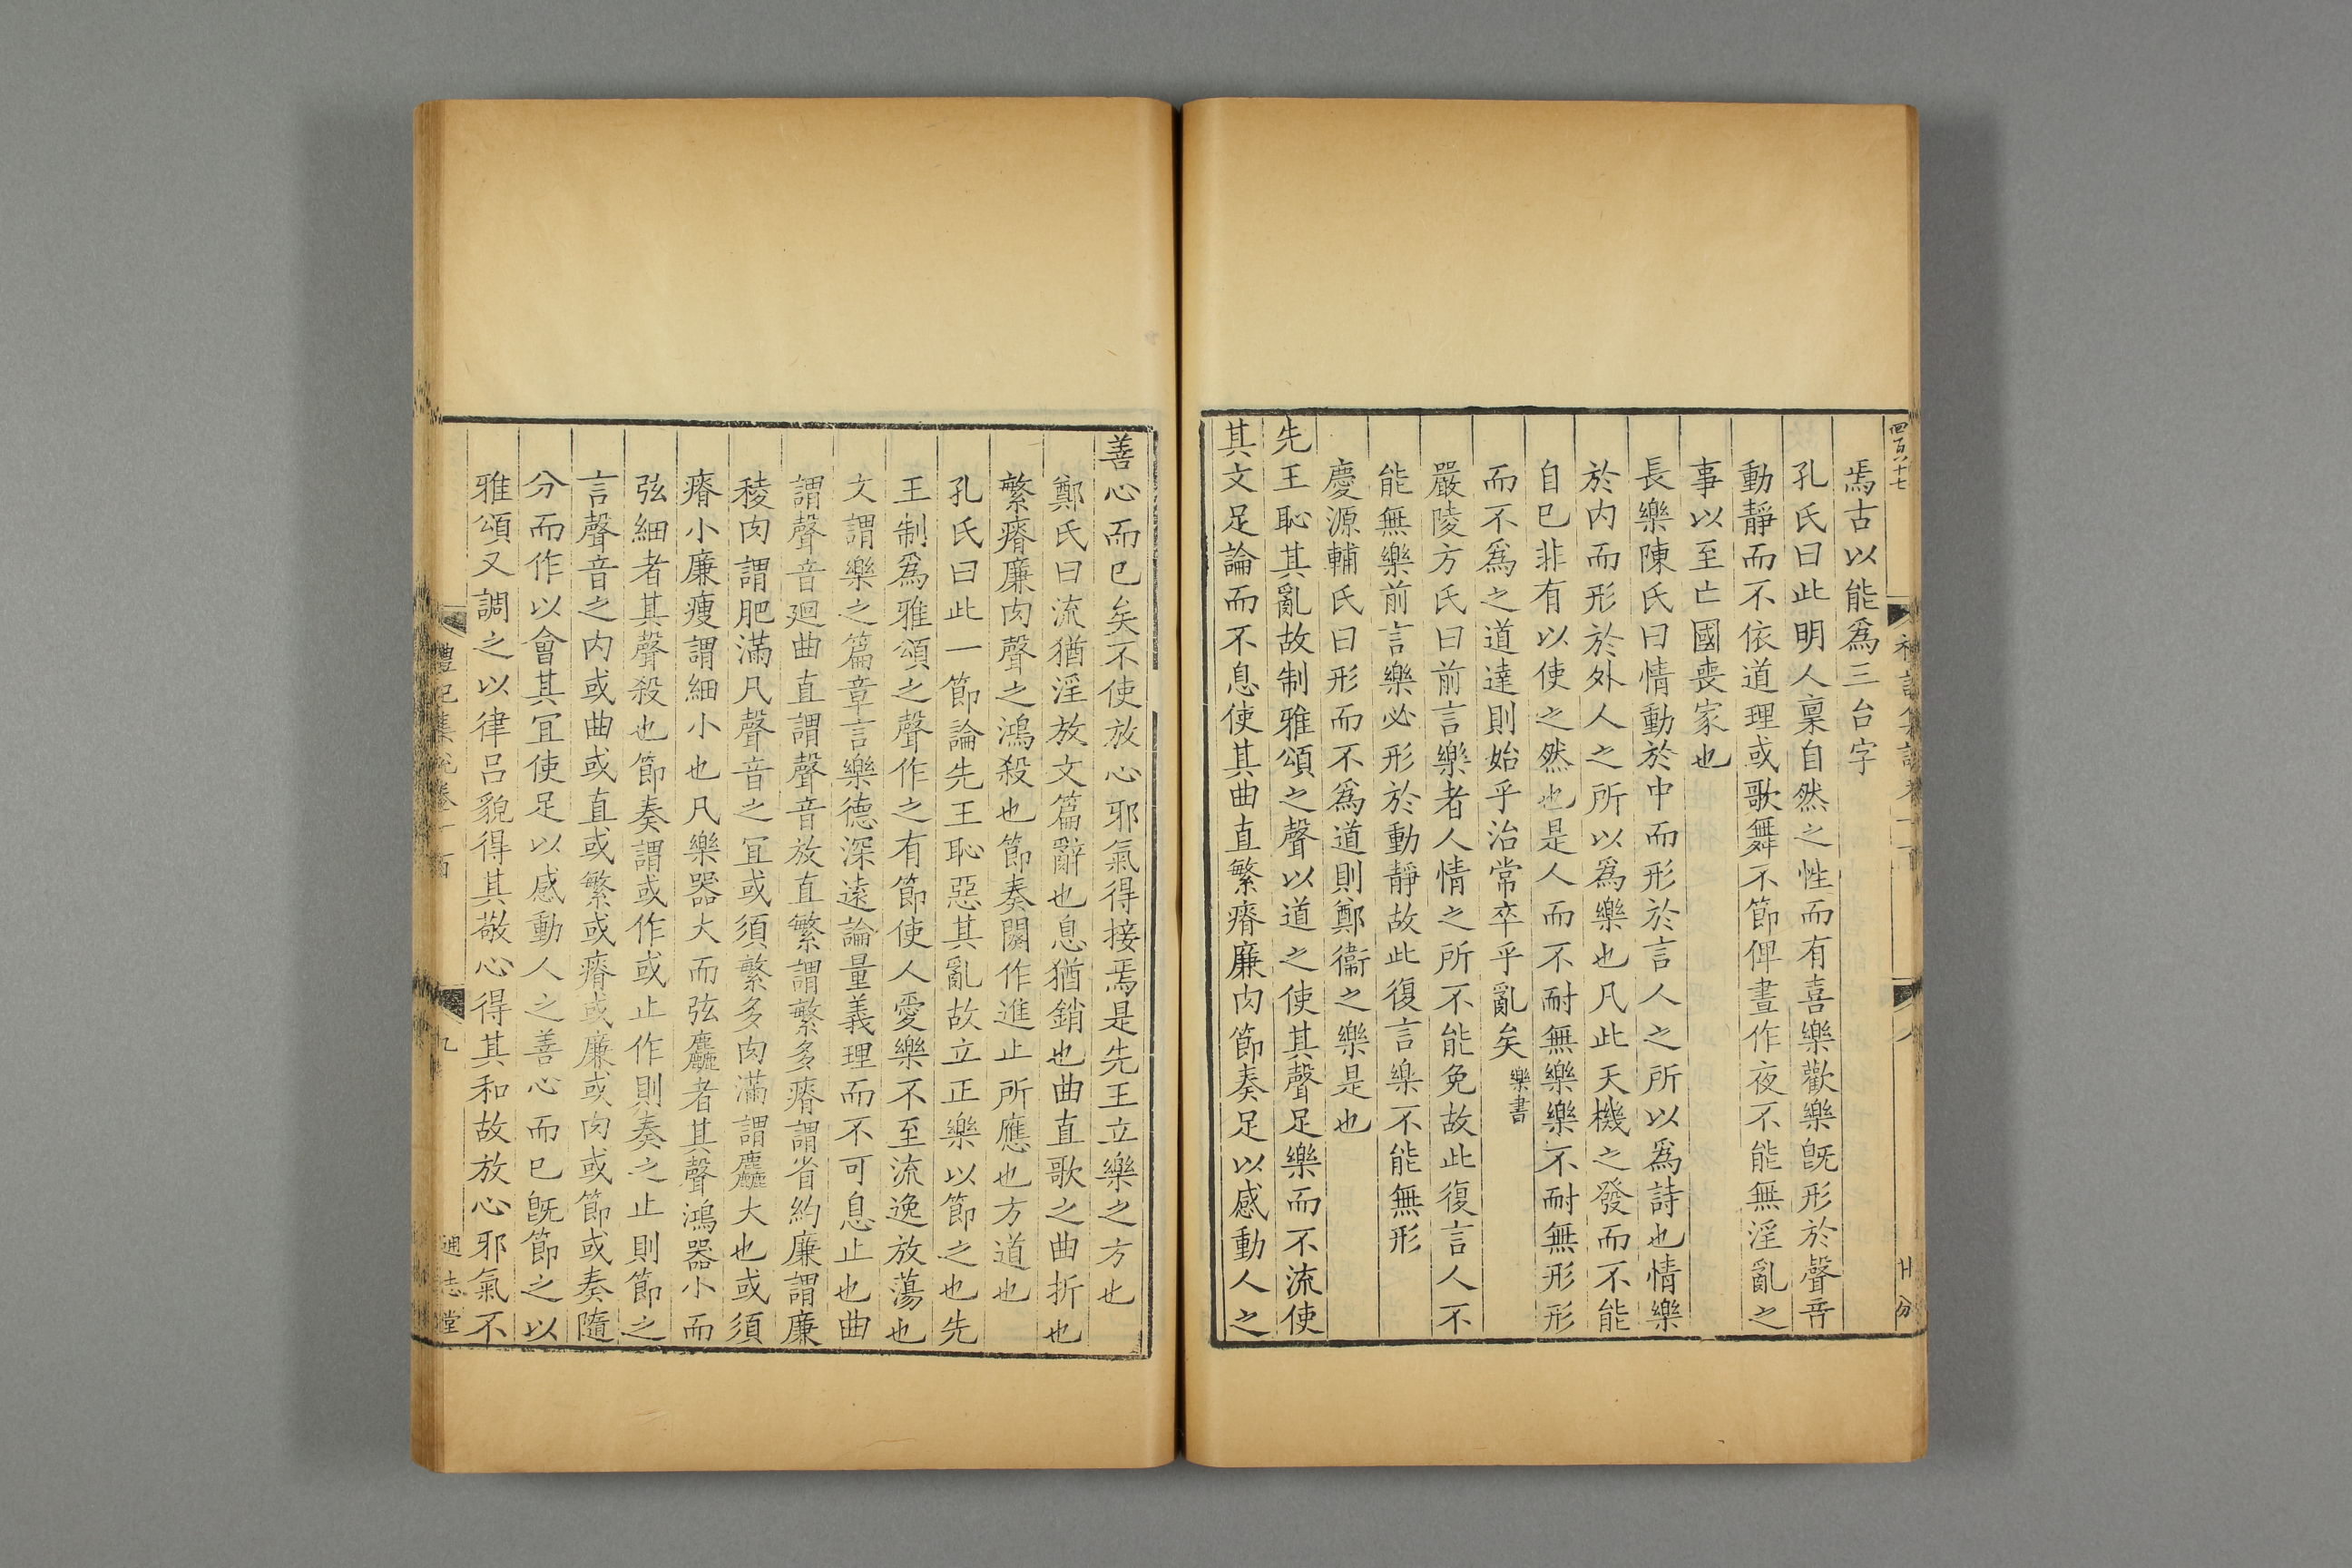 四百十七
焉古以能爲三台字
孔氏曰此明人稟自然之性而有喜樂歡樂旣形於聲音
動靜而不依道理或歌舞不節俾晝作夜不能無淫亂之
事以至亡國喪家也
長樂陳氏曰情動於中而形於言人之所以爲詩也情樂
於内而形於外人之所以爲樂也凡此天機之發而不能
自已非有以使之然也是人而不耐無樂樂不耐無形形
而不爲之道達則始乎治常卒乎亂矣樂書
嚴陵方氏曰前言樂者人情之所不能免故此復言人不
能無樂前言樂必形於動靜故此復言樂不能無形
慶源輔氏曰形而不爲道則鄭衞之樂是也
先王恥其亂故制雅頌之聲以道之使其聲足樂而不流使
其文足論而不息使其曲直繁瘠廉肉節奏足以感動人之
善心而已矣不使放心邪氣得接焉是先王立樂之方也
鄭氏曰流猶淫放文篇辭也息猶銷也曲直歌之曲折也
繁瘠廉肉聲之鴻殺也節奏闋作進止所應也方道也
孔氏曰此一節論先王恥惡其亂故立正樂以節之也先
王制爲雅頌之聲作之有節使人愛樂不至流逸放蕩也
文謂樂之篇章言樂德深遠論量義理而不可息止也曲
謂聲音廻曲直謂聲音放直繁謂繁多瘠謂省約廉謂廉
稜肉謂肥滿凡聲音之冝或須繁多肉滿謂麤大也或須
瘠小廉瘦謂細小也凡樂器大而弦麤者其聲鴻器小而
弦細者其聲殺也節奏謂或作或止作則奏之止則節之
言聲音之内或曲或直或繁或瘠或廉或肉或節或奏隨
分而作以會其冝使足以感動人之善心而已旣節之以
雅頌又調之以律呂貌得其敬心得其和故放心邪氣不
禮記集說卷一百
九
通志堂